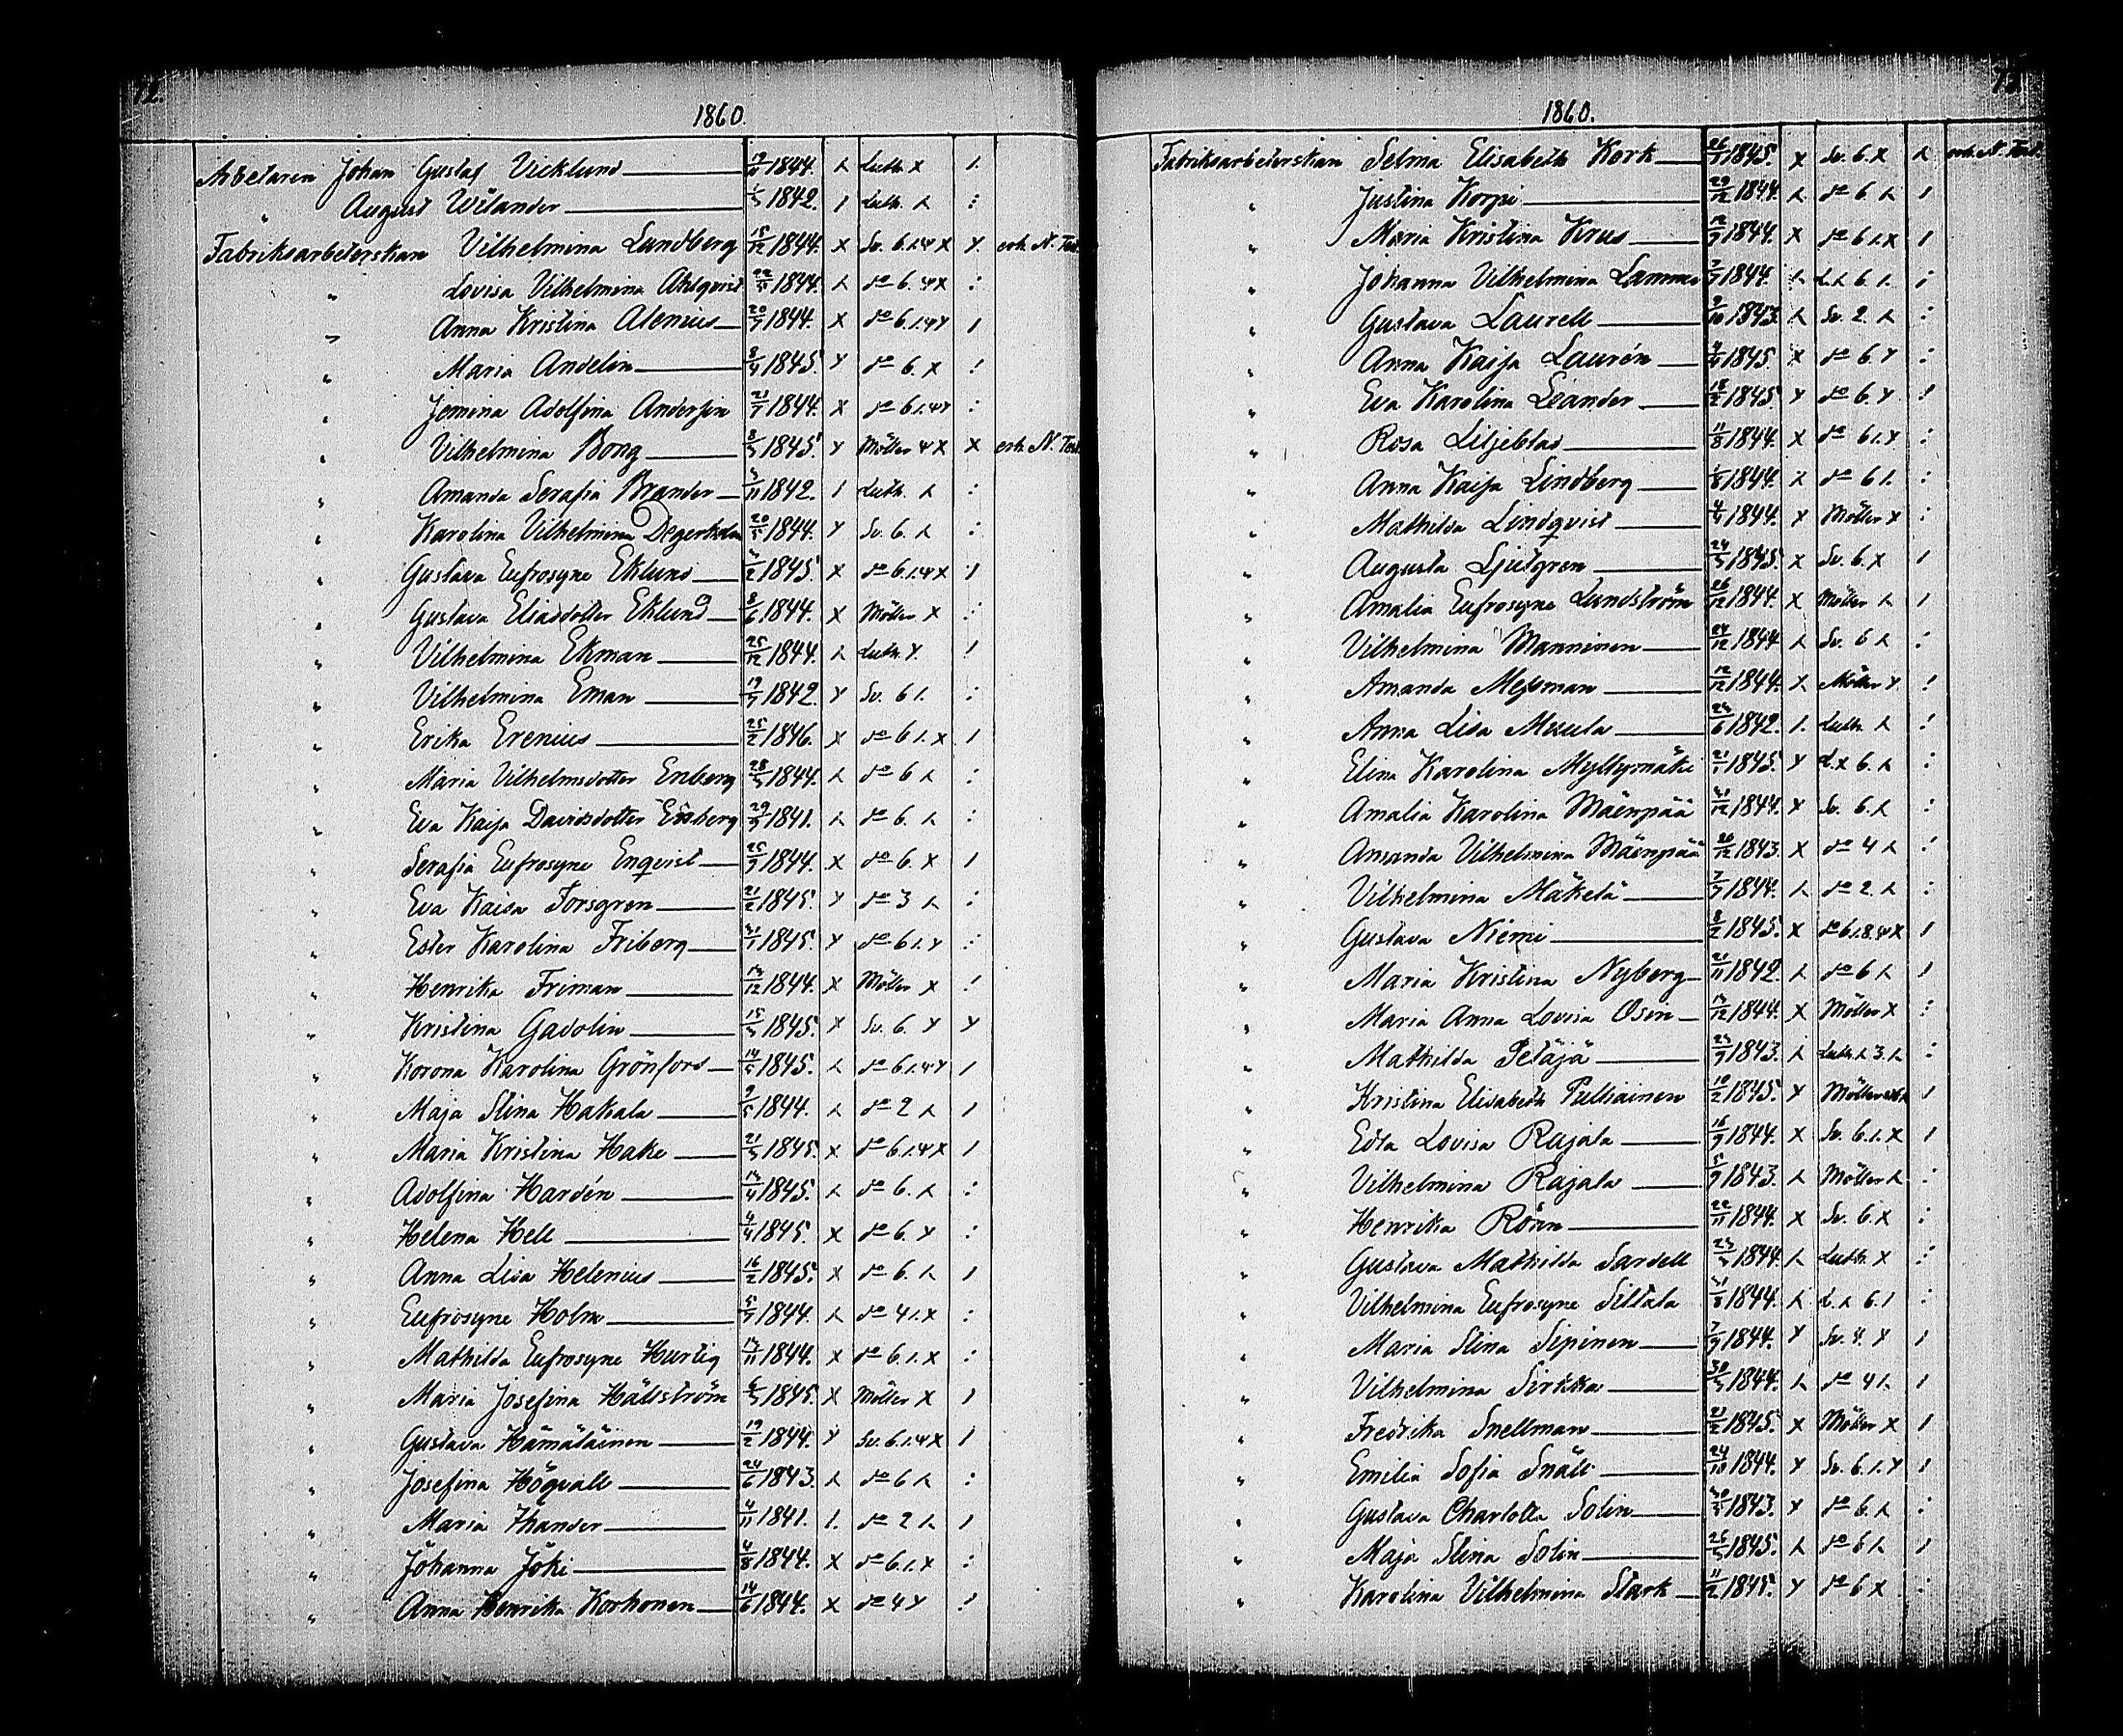 12.
1860.
Arbetaren Johan Gustaf Vicklund 19/11 1844. λ Luth. X 1.
" August Wilander 1/3 1842. 1 Luth. λ :
Fabriksarbeterskan Vilhelmina Lundberg 15/12 1844. X Sv. 6.1.4 X Y. erh. N. Test.
" Lovisa Vilhelmina Ahlqvist 22/11 1844. λ do 6. 4X :
" Anna Kristina Alenius 20/7 1844. X do 6.1.4Y 1
" Maria Andelin 8/4 1845. Y do 6. X !
" Jemina Adolfina Andersin 21/7 1844. X do 6.1.4Y :
" Vilhelmina Bong 8/3 1845. Y Möller 4 X X erh. N. Test.
" Amanda Serafia Brander 3/11 1842. 1 Luth. λ :
" Karolina Vilhelmina 20/5 1844. Y Sv. 6. λ :
" Gustava Eufrosyne Eklund 3/2 1845. X do 6.1.4X :1
" Gustava Eliasdotter Eklund 8/6 1844. X Möller X :
" Vilhelmina Ekman 25/12 1844. λ Luth. Y. !
" Vilhelmina Eman 19/7 1842. Y Sv. 6 1. :
" Erika Erenius 25/2 1846. X do 6 1. X 1
" Maria Vilhelmsdotter Enberg 28/3 1844. λ do 6 λ :
" Eva Kaija Davidsdotter Enberg 29/9 1841. λ do 6. λ :
" Serafia Eufrosyne Enqvist 25/9 1844. X do 6. X 1
" Eva Kaisa Forsgren 21/2 1845. Y do 3 λ :
" Ester Karolina Friberg 31/1 1845. Y do 6 1. Y :
" Henrika Friman 13/12 1844. X Möller X !
" Kristina Gadolin 15/3 1845. X Sv. 6. Y Y
" Korona Karolina Grönfors 14/5 1845. λ do 6.1.4Y 1
" Maja Stina Hakala 9/5 1844. λ do 2 λ 1
" Maria Kristina Hake 21/3 1845. X do 6.1.4X 1
" Adolfina Hardén 13/4 1845. λ do 6. λ :
" Helena Hell 4/4 1845. X do 6. Y :
" Anna Lisa Helenius 16/2 1845. X do 6. λ 1
" Eufrosyne Holm 5/7 1844. λ do 4 1. X :
" Mathilda Eufrosyne Hurtig 13/11 1844. X do 6. 1. X :
" Maria Josefina Hällström 6/3 1845. X Möller X 1
" Gustava Hämäläinen 19/2 1844. Y Sv. 6.1.4X 1
" Josefina Högvall 24/6 1843. λ do 6 λ :
" Maria Ihander 4/11 1841. 1. do 2 λ 1
" Johanna Joki 4/8 1844. X do 6.1.X :
" Anna Henrika Korhonen 14/6 1844. X do 4 Y !
13.
1860.
Fabriksarbeterskan Selma Elisabeth Kork 26/5 1845. X Sv. 6. X λ erh. N. Test.
" Justina Korpi 29/12 1844. λ do 6 λ 1
" Maria Kristina Krus 12/9 1844. X do 6 1. X 1
" Johanna Vilhelmina 7/7 1844. λ L. λ 6 1. :
" Gustava Laurell 9/10 1843. λ Sv. 2. λ :
" Anna Kaija Laurén 4/4 1845. X do 6. Y :
" Eva Karolina Leander 18/2 1845. Y do 6. Y !
" Rosa Liljeblad 11/8 1844. X do 6 1. Y :
" Anna Kaija Lindberg 1/8 1844. λ do 6 1. :
" Mathilda Lindqvist 4/4 1844. Y Möller X :
" Augusta Ljutgren 24/3 1845. X Sv. 6. X 1
" Amalia Eufrosyne Lundström 26/12 1844. X Möller λ 1
" Vilhelmina Manninen 24/12 1844. λ Sv. 6 λ :
" Amanda Messman 12/12 1844. λ Möller Y. !
" Anna Lisa Muula 23/6 1842. 1. Luth. λ !
" Elina Karolina Myllymäki 21/1 1845. Y L. X 6. λ :
" Amalia Karolina Mäenpää 31/12 1844. Y Sv. 6. λ :
" Amanda Vilhelmina Mäenpää 26/12 1843. X do 4 λ !
" Vilhelmina Mäkelä 7/7 1844. λ do 2. λ :
" Gustava Niemi 8/2 1845. X do 6.1.8.4X 1
" Maria Kristina Nyberg 21/11 1842. λ do 6 λ 1
" Maria Anna Lovisa Osin 13/12 1844. X Möller X :
" Mathilda Petäjä 23/9 1843. λ Luth. λ 3. λ :
" Kristina Elisabeth Pulliainen 10/2 1845. Y Möller 1
" Edla Lovisa Rajala 16/9 1844. X Sv. 6.1. X 1
" Vilhelmina Rajala 5/9 1843. λ Möller λ :
" Henrika Rönn 22/11 1844. X Sv. 6. X :
" Gustava Mathilda Sardell 23/3 1844. λ Luth. X :
" Vilhelmina Eufrosyne Siltala 31/8 1844. λ L. λ 6. 1 :
" Maria Stina Sipinen 7/9 1844. Y Sv. 4. Y 1
" Vilhelmina Sirkka 30/3 1844. λ do 4 1. 1
" Fredrika Snellman 21/2 1845. X Möller X 1
" Emilia Sofia Snäll 24/10 1844. Y Sv. 6. 1. Y 1
" Gustava Charlotta Solin 30/3 1843. Y do 6. λ :
" Maja Stina Solin 25/3 1845. λ do 6 λ 1
" Karolina Vilhelmina Stark 11/2 1845. Y do 6 X :